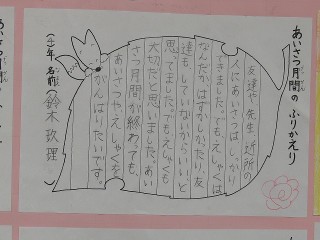 あいさつ月間の ふりかえり
友達や先生、近所の
人にあいさつは、しっかり
できました。でも、えしゃくは
なんだかはずかしかったり、友
達も、していないからいい、と
思ってました。でも、えしゃくも
大切だと思いました。あい
さつ月間が終わっても、
あいさつや、えしゃくを
がんばりたいです。
年 名前(鈴木 玖理